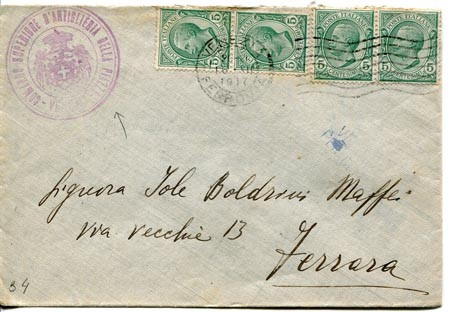 COMANDO SUPERIORE D'ARTIGLIERIA DELLA
POSTE ITALIANE
5 5
POSTE ITALIANE POSTE ITALIANE
5 CENTESIMI 5 5 CENTESIMI 5
Signora Iole Boldrini Maffei
via vecchie 13
Ferrara
34